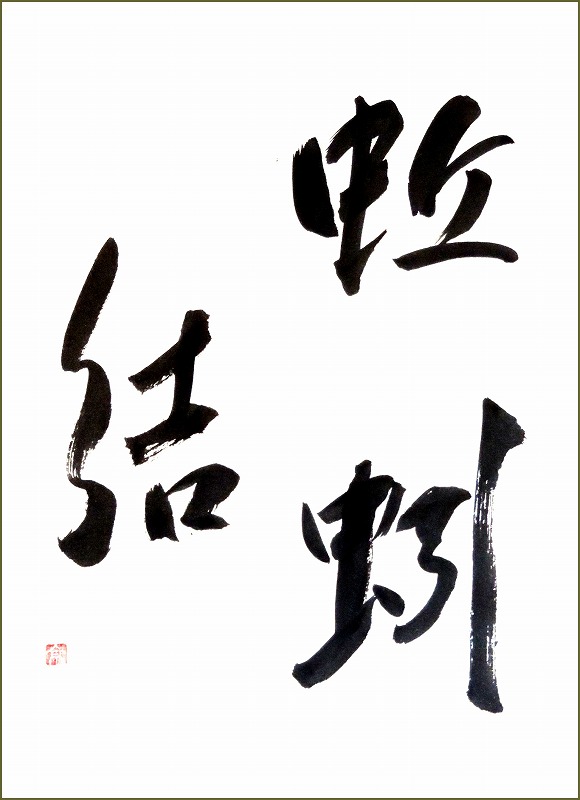 蚯蚓
結